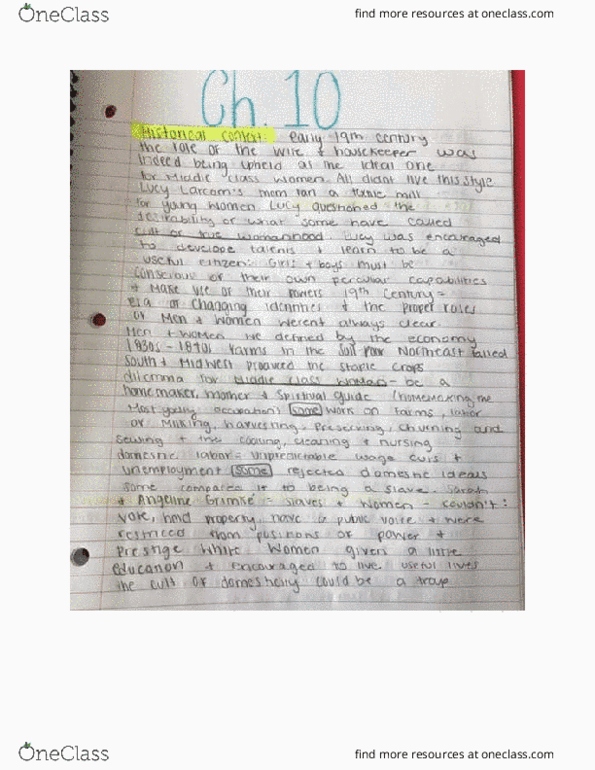 OneClass
find more resources at oneclass.com
Ch. 10
Historical context: early 19th century
the role of the wife & housekeeper was
indeed being upheld as the ideal one
for Middle class women. All didnt live this style
Lucy Larcom's mom ran a mill
for young women Lucy questioned the
desirability of what some have called
cult of true womanhood. Lucy was encouraged
to develope talents + learn to be a
useful citizen: Girls + boys must be
conscious of their own peculiar capabilities
+ Make use of their powers 19th century =
era of changing identities + the proper roles
of Men + women werent always clear.
Men + women defined by the economy
1830s - 1840s Farms in the soil poor Northeast failed
South + Midwest produced the staple crops
dilemma for Middle class woman - be a
homemaker, mother + Spiritual guide (homemaking the
Most occupation) some work on farms, labor
of Milking, harvesting, Preserving, churning and
sewing + the cooking, cleaning + nursing
domestic labor = unpredictable wage cuts +
unemployment some rejected domestic ideals
some compared it to being a slave. Sarah
+ Angeline Grimké = slaves + women - couldn't:
vote, hold property, have a public voice + were
restricted from positions of power +
Prestige White Women given a little
education + encouraged to live useful lives
the cult of domesticity could be a trap
OneClass
find more resources at oneclass.com